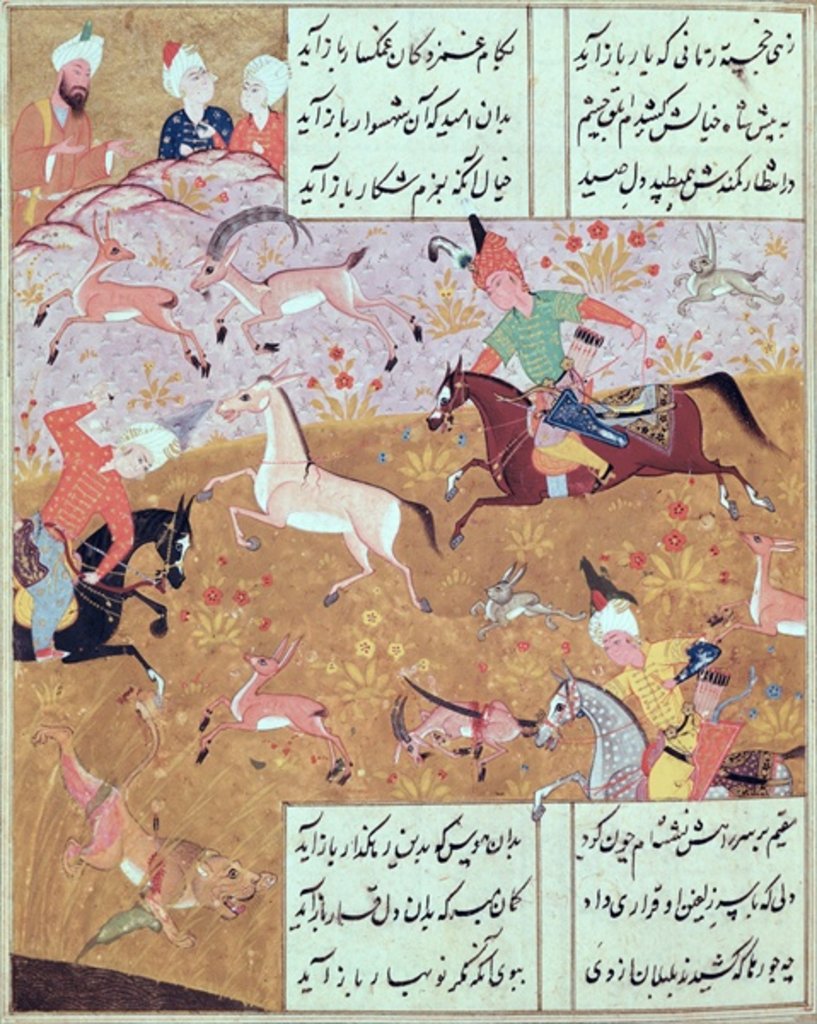 زهی خجسته زمانی که یار باز آید
بکام غمزدگان غمگسار باز آید
به پیش شاه خیالش کشیدم ابلق چشم
بدان امید که آن شهسوار باز آید
در انتظار کمندش همی‌طپد دل صید
خیال آنکه بعزم شکار باز آید
مقیم بر سر راهش نشسته‌ام چون کرد
بدان هوس که بدین رهگذار باز آید
دلی که با سر زلفین او قراری داد
گمان مبر که بدان دل قرار باز آید
چه جورها که کشیدند بلبلان از دی
ببوی آنکه دگر نوبهار باز آید